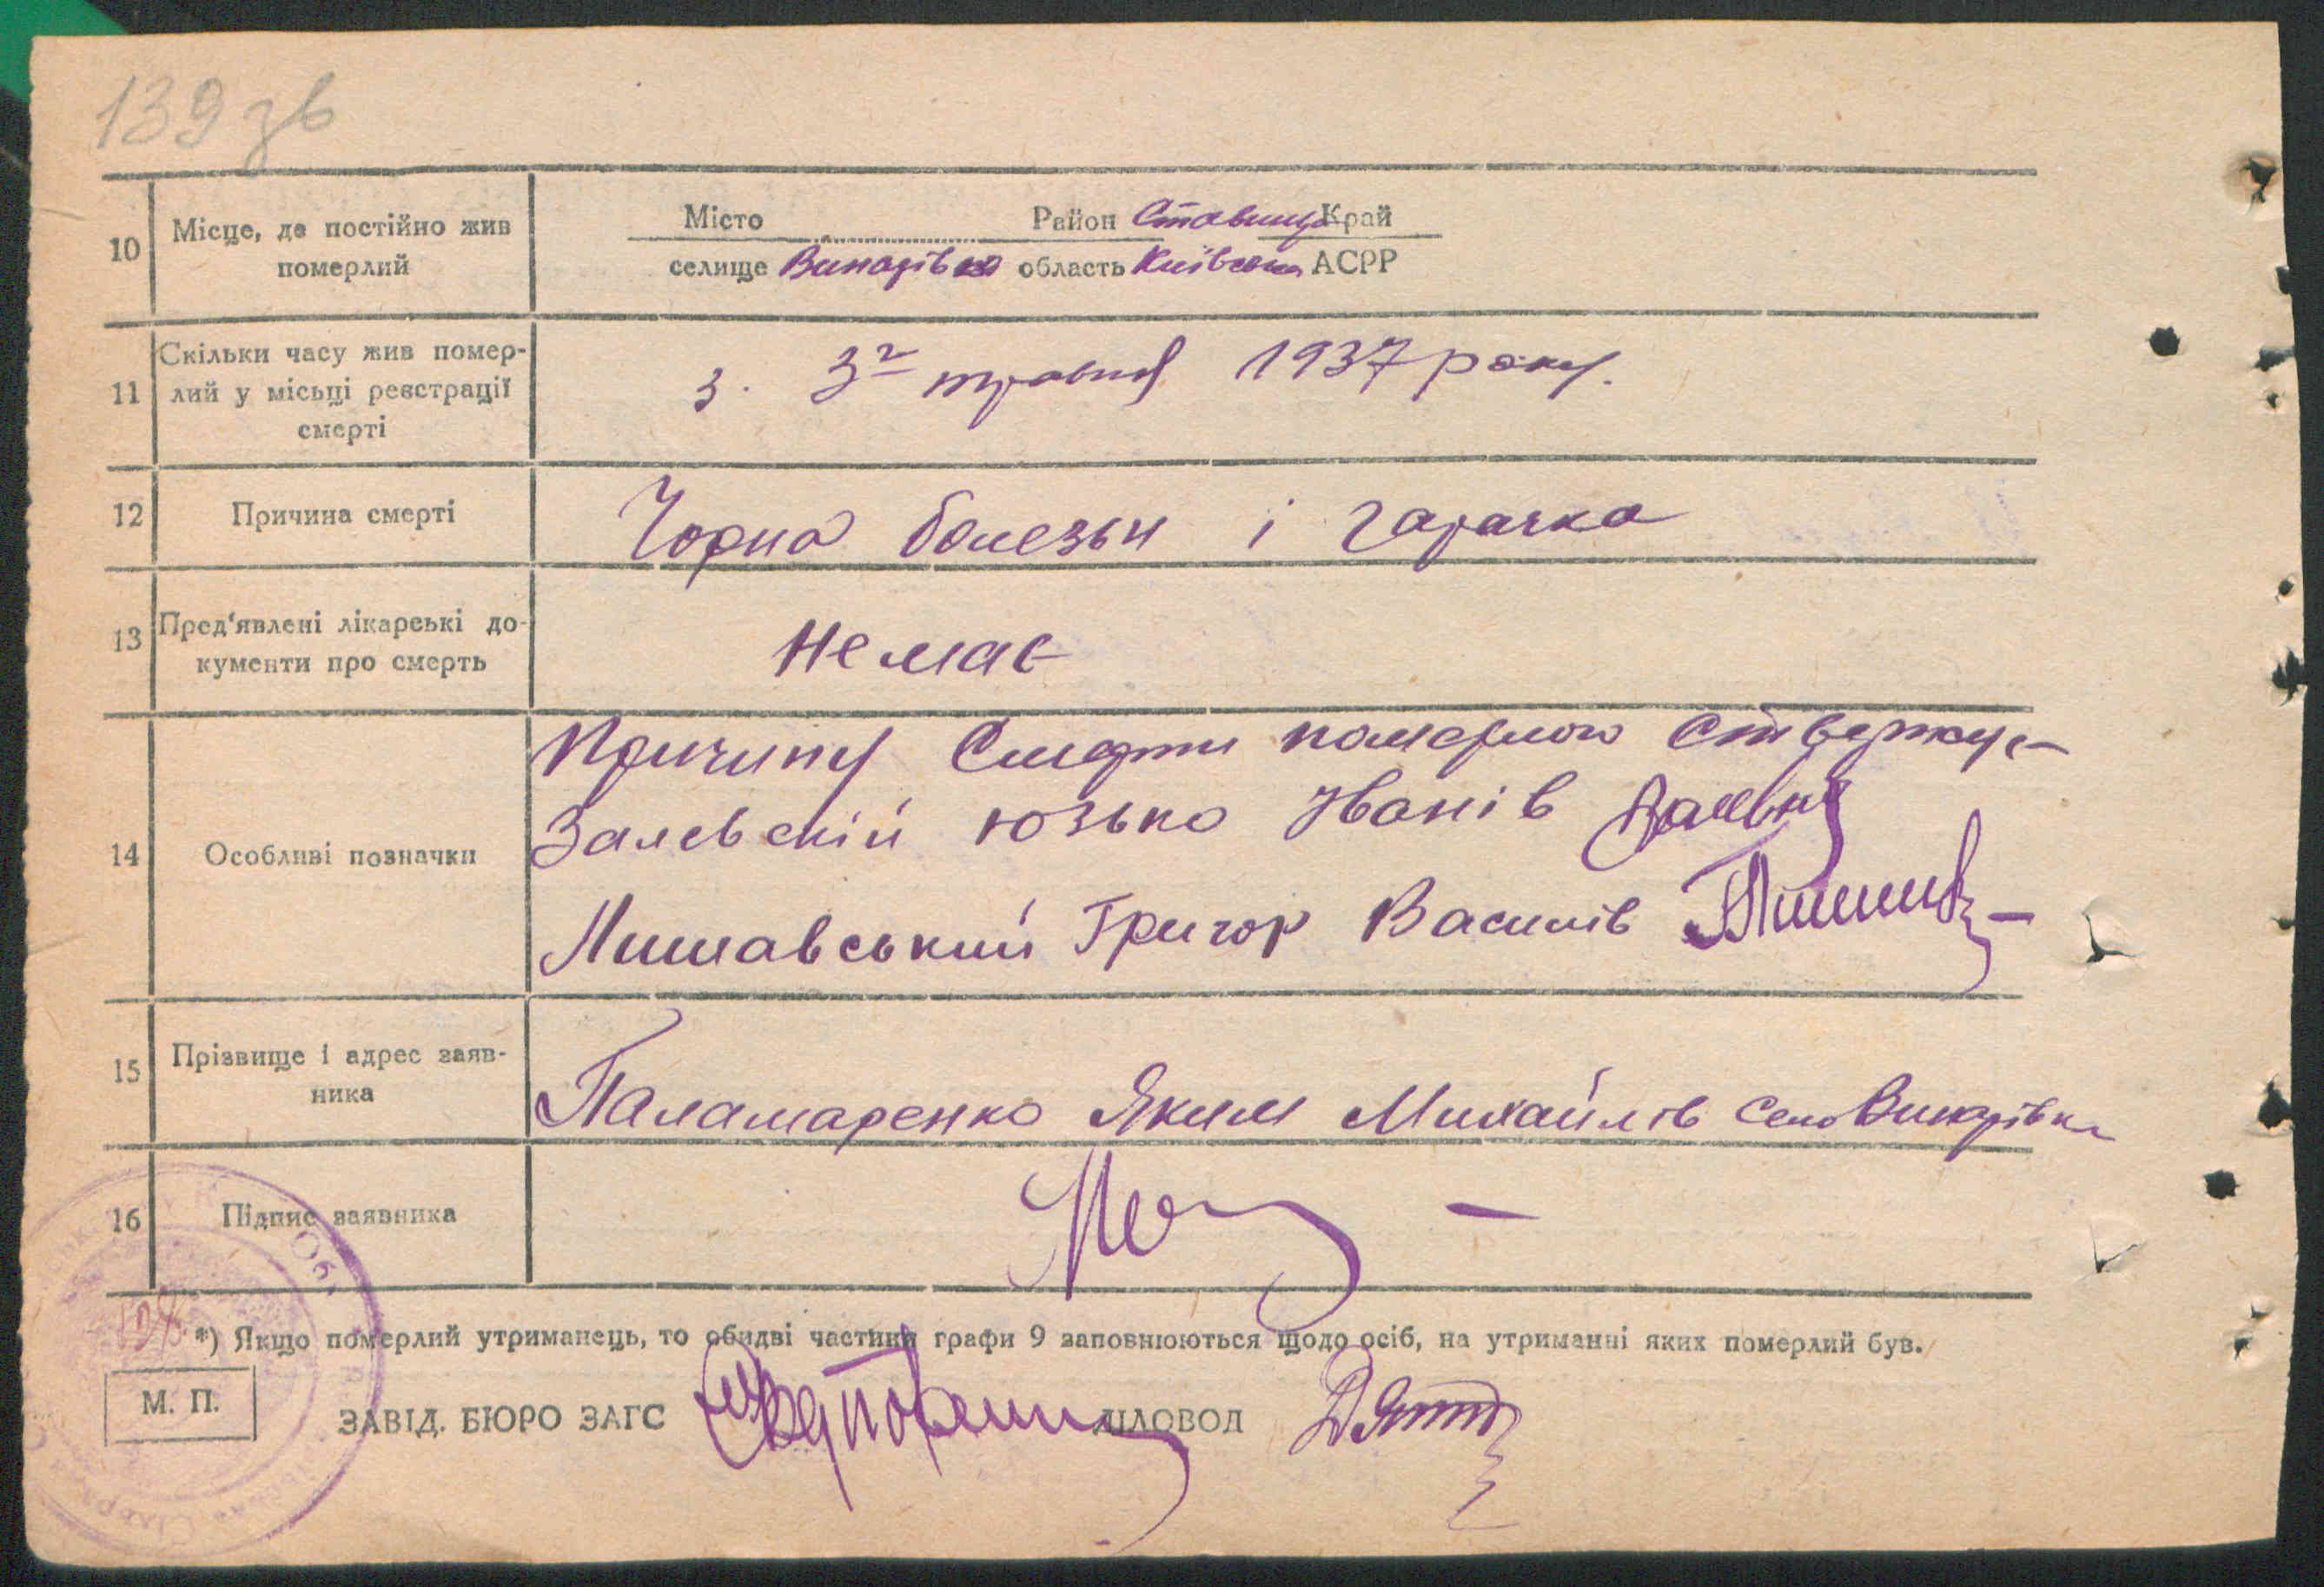 139 зв
10 Місце, де постійно жив померлий
Місто Район Ставище Край
селище Винарівка область Київська АСРР
11 Скільки часу жив помер-
лий у місьці реєстрації
смерті
з. 3г травня 1937 року.
12 Причина смерті
Чорна болезьн і гарачка
13 Пред'явлені лікарські до-
кументи про смерть
Немає
14 Особливі позначки
Причину Смерти померлого Ствержує
Залевский Юзько Иванів
Мишавський Григор Василів
15 Прізвище і адрес заяв-
ника
Паламаренко Яким Михайлів Село Винарівка
16 Підпис заявника
*) Якщо померлий утриманець, то обидві частини графи 9 заповнюються щодо осіб, на утриманні яких померлий був.
М. П.
ЗАВІД. БЮРО ЗАГС ДІЛОВОД